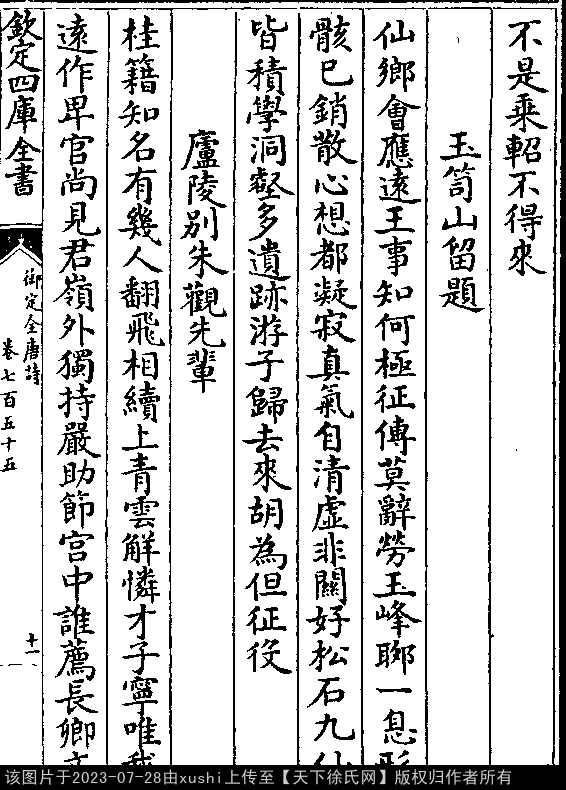 不是乗軺不得來
玉笥山留題
仙鄉會應遠王事知何極征傳莫辭勞玉峰聊一息形
骸已銷散心想都凝寂真氣自清虛非關好松石九仙
皆積學洞壑多遺跡游子歸去來胡為但征役
廬陵別朱觀先輩
桂籍知名有幾人翻飛相續上青雲解憐才子寧唯我
遠作卑官尚見君嶺外獨持嚴助節宮中誰薦長卿文
欽定四庫全書
御定全唐詩
卷七百五十五
十一
该图片于2023-07-28由xushi上传至【天下徐氏网】版权归作者所有